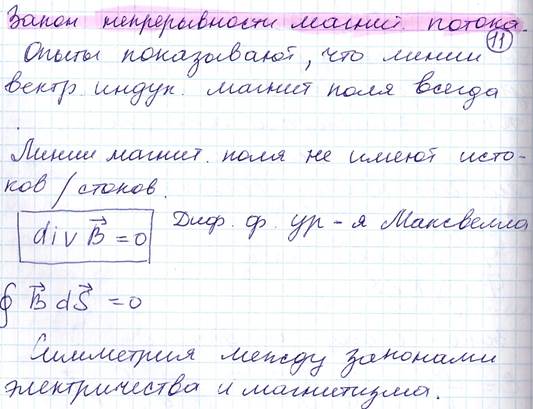 Закон непрерывности магнит. потока.
11
Опыты показывают, что линии
вектр. индук. магнит поля всегда
.
Линии магнит. поля не имеют исто-
ков / стоков.
div B⃗ = 0 Диф. ф. ур-я Максвелла
∮ B⃗ dS⃗ = 0
Симметрия между законами
электричества и магнетизма.